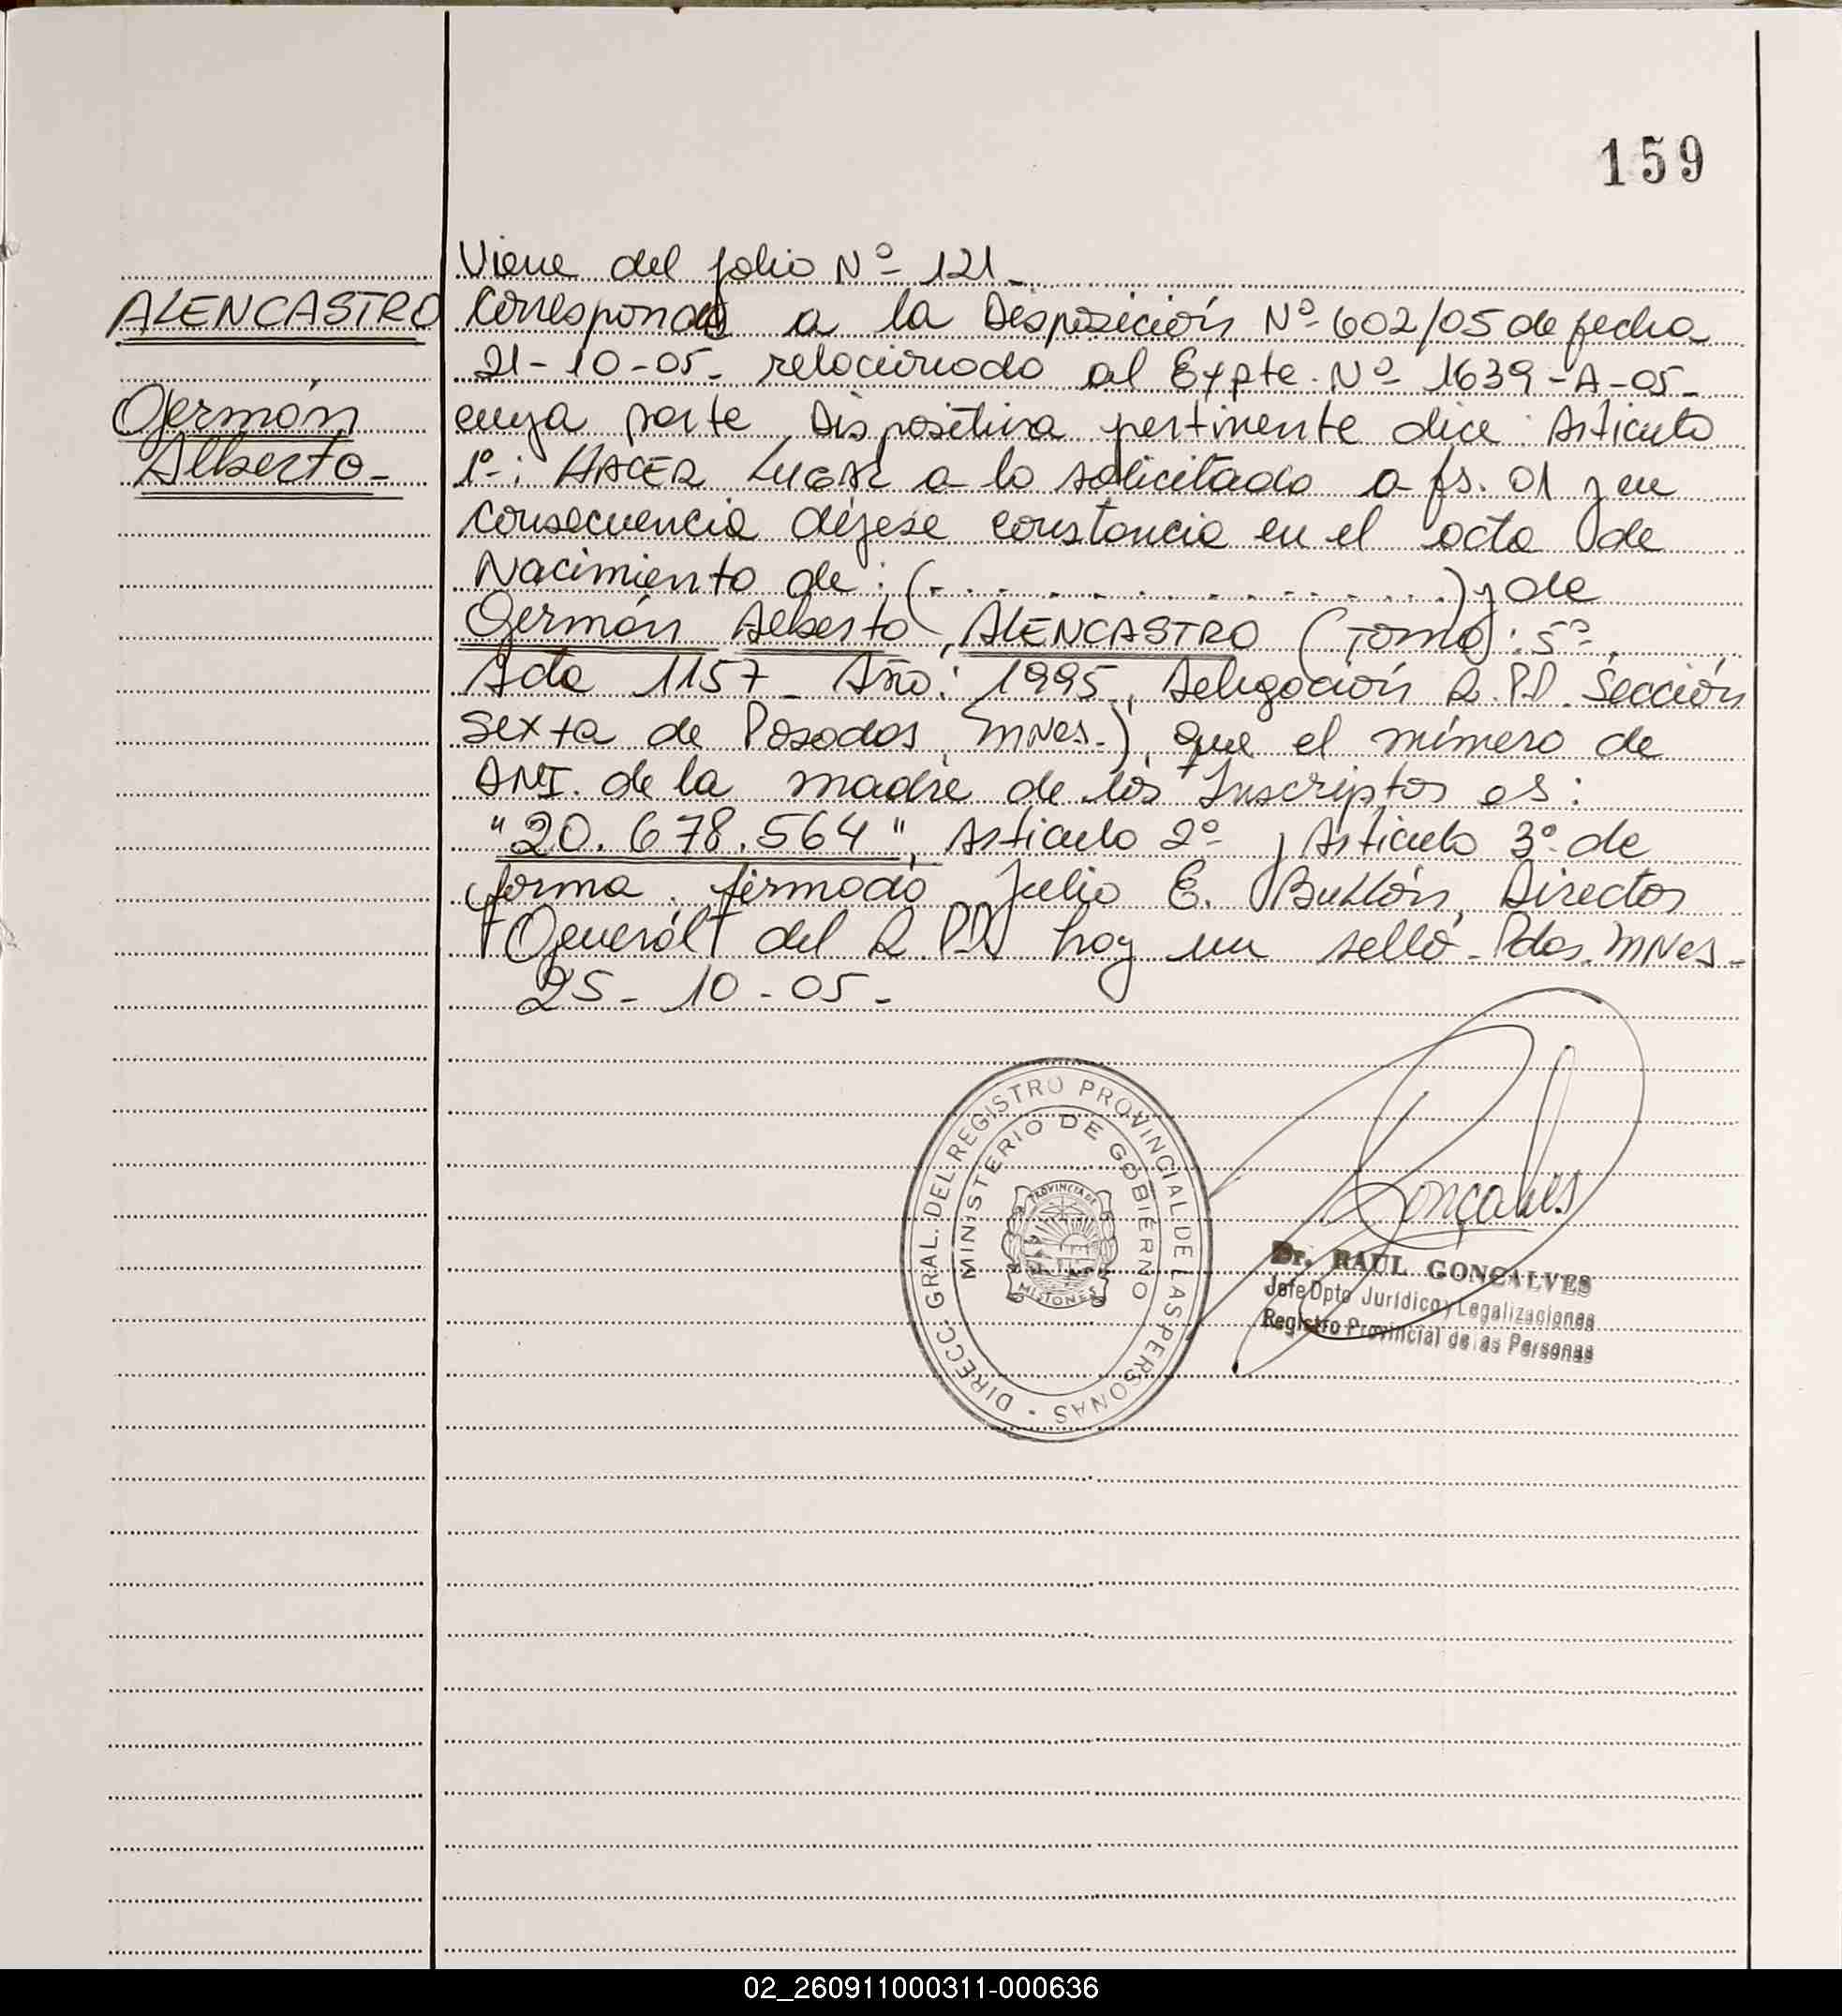 159
Viene del folio Nº 121
ALENCASTRO
Germán
Alberto-
Corresponde a la Disposición Nº 602/05 de fecha
21-10-05- relacionado al Expte. Nº 1639-A-05-
cuya parte Dispositiva pertinente dice: Articulo
1º: HACER LUGAR a lo solicitado a fs. 01 y en
consecuencia déjese constancia en el acta de
Nacimiento de: (. . . . . . . . . . . . . . . . .) y de
Germán Alberto ALENCASTRO (Tomo: 5º,
Acta 1157 - Año: 1995, Delegación R.P.P. Sección
Sexta de Posadas, Mnes.), que el número de
DNI. de la madre de los Inscriptos es:
"20.678.564", Articulo 2º y Articulo 3º de
forma. firmado Julio E. Bullón, Director
General del R.P.P. hay un sello- Pdas. Mnes-
25-10-05-
DIRECC. GRAL. DEL REGISTRO PROVINCIAL DE LAS PERSONAS -
MINISTERIO DE GOBIERNO
PROVINCIA DE
MISIONES
Gonçalves
Dr. RAUL GONÇALVES
Jefe Dpto Jurídico y Legalizaciones
Registro Provincial de las Personas
02_260911000311-000636